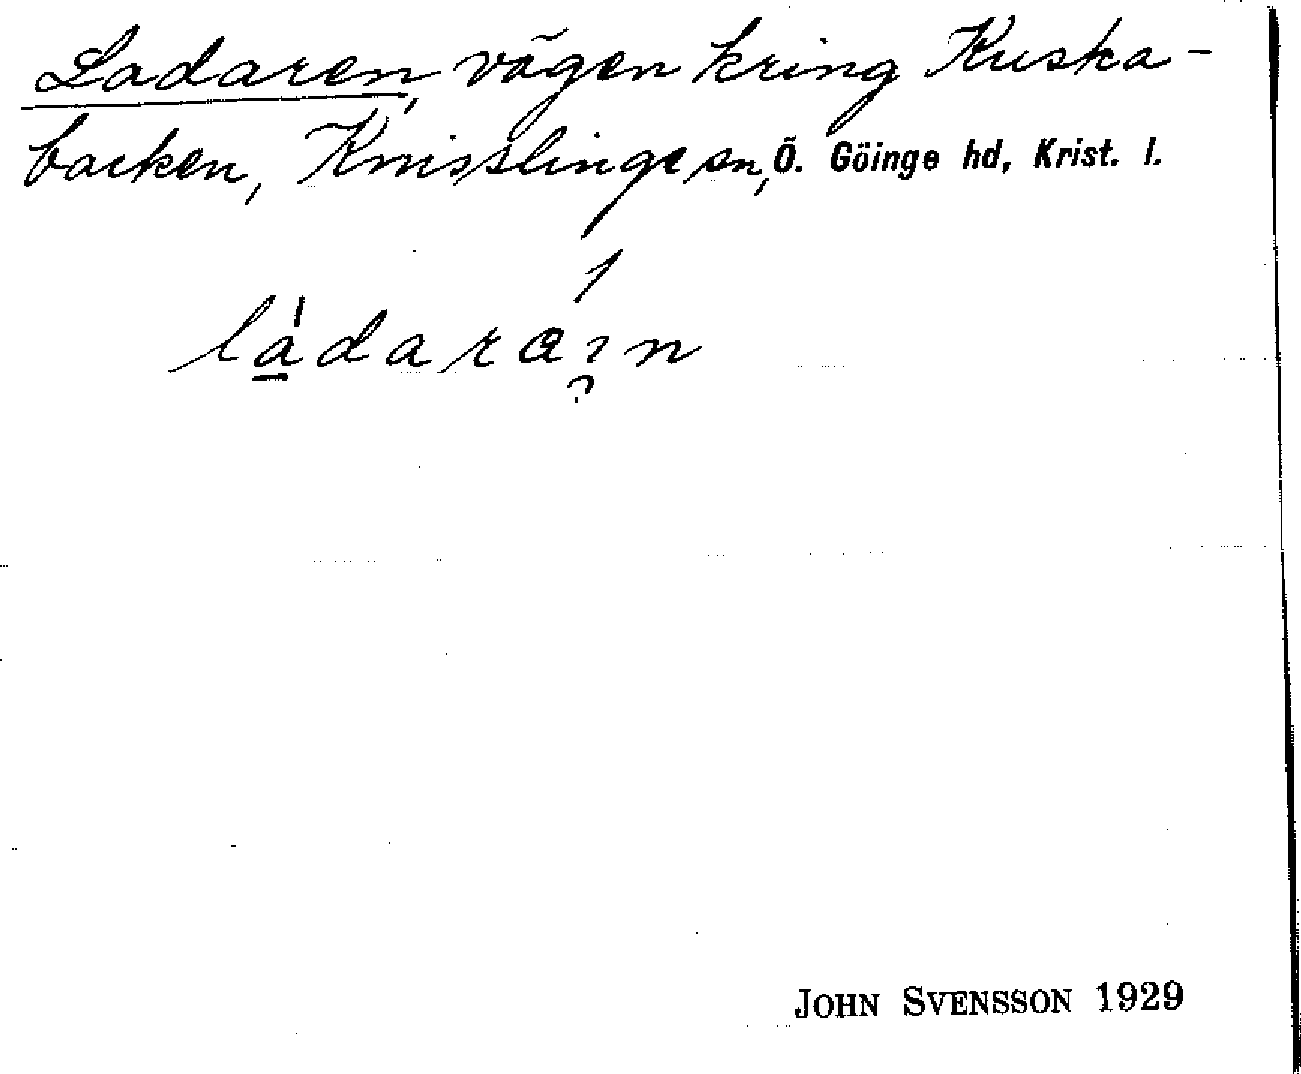 Ladaren, vägen kring Kuska-
backen, Knisslinge sn, Ö. Göinge hd, Krist. l.
JOHN SVENSSON 1929